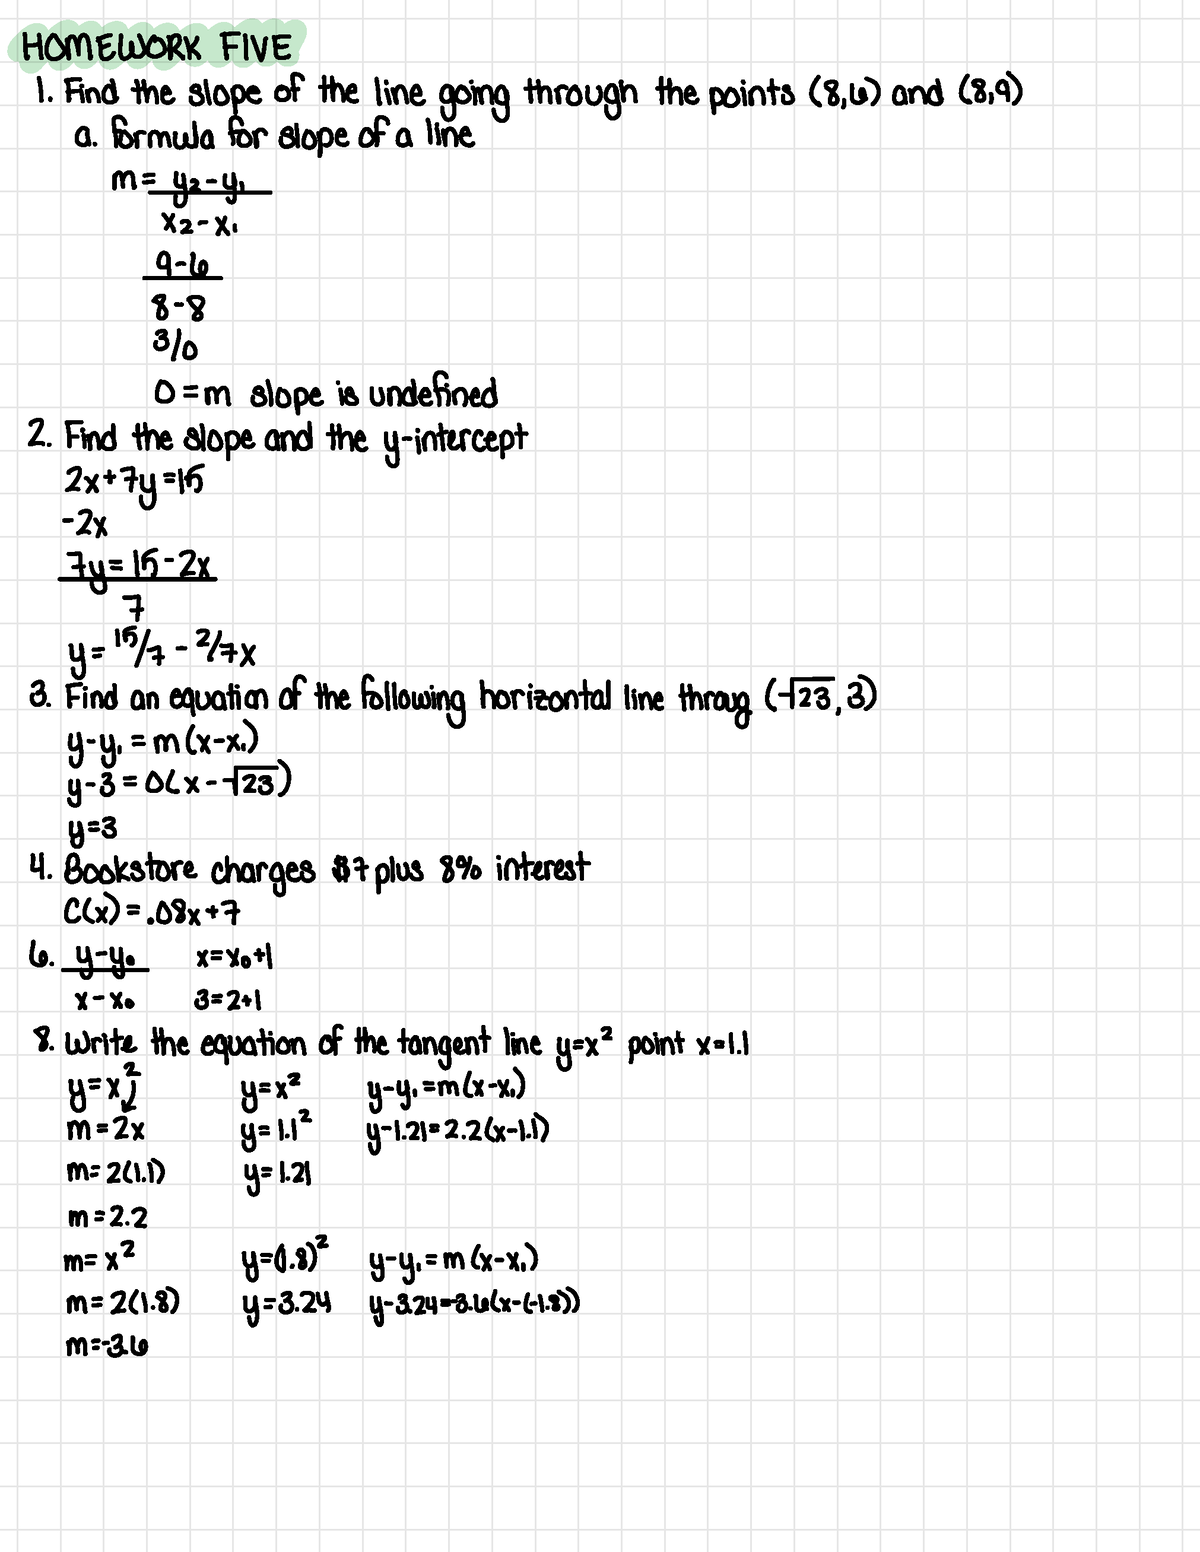 HOMEWORK FIVE
1. Find the slope of the line going through the points (8,6) and (8,9)
a. formula for slope of a line
m= y₂-y₁
x₂-x₁
9-6
8-8
3/0
0=m slope is undefined
2. Find the slope and the y-intercept
2x+7y=15
-2x
7y=15-2x
7
y=15/7-2/7x
3. Find an equation of the following horizontal line throug (-√23,3)
y-y₁=m(x-x₁)
y-3=0(x--√23)
y=3
4. Bookstore charges $7 plus 8% interest
C(x)=.08x+7
6. y-y₀ x=x₀+1
x-x₀ 3=2+1
8. Write the equation of the tangent line y=x² point x=1.1
y=x² y=x² y-y₁=m(x-x₁)
m=2x y=1.1² y-1.21=2.2(x-1.1)
m=2(1.1) y=1.21
m=2.2
m=x² y=(1.8)² y-y₁=m(x-x₁)
m=2(1.8) y=3.24 y-3.24=-3.6(x-(-1.8))
m=-3.6